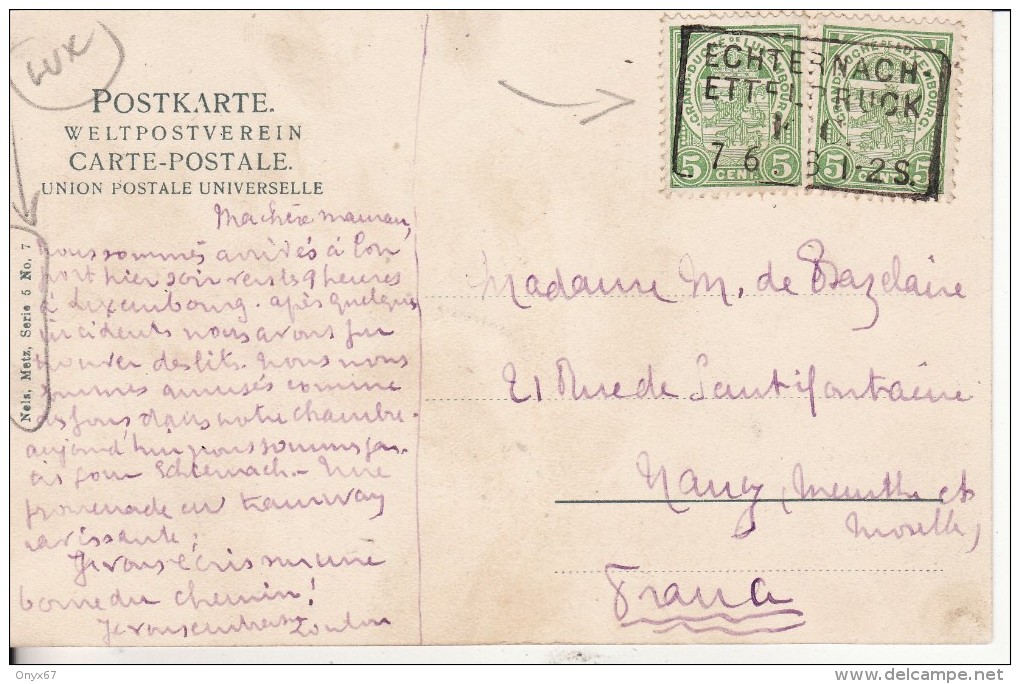 LUX
POSTKARTE.
WELTPOSTVEREIN
CARTE-POSTALE.
UNION POSTALE UNIVERSELLE
Nels, Metz, Serie 5 No. 7
GRAND-DUCHÉ DE LUXEMBOURG.
5 CENT 5
GRAND-DUCHÉ DE LUXEMBOURG.
5 CENT 5
ECHTERNACH-
ETTELBRUCK
7 6 8 1-2 S.
Ma chère maman,
nous sommes arrivés à bon
port hier soir vers les 9 heures
à Luxembourg. après quelques
incidents nous avons pu
trouver des lits. nous nous
sommes amusés comme
des fous dans notre chambre.
aujourd'hui nous sommes par-
tis pour Echternach. Une
promenade en tramway
ravissante;
Je vous écris sur une
borne du chemin!
Je vous embrasse
Madame M. de Bazelaire
21 Rue de
Nancy, Meurthe et
Moselle,
France
Onyx67
delcampe.net